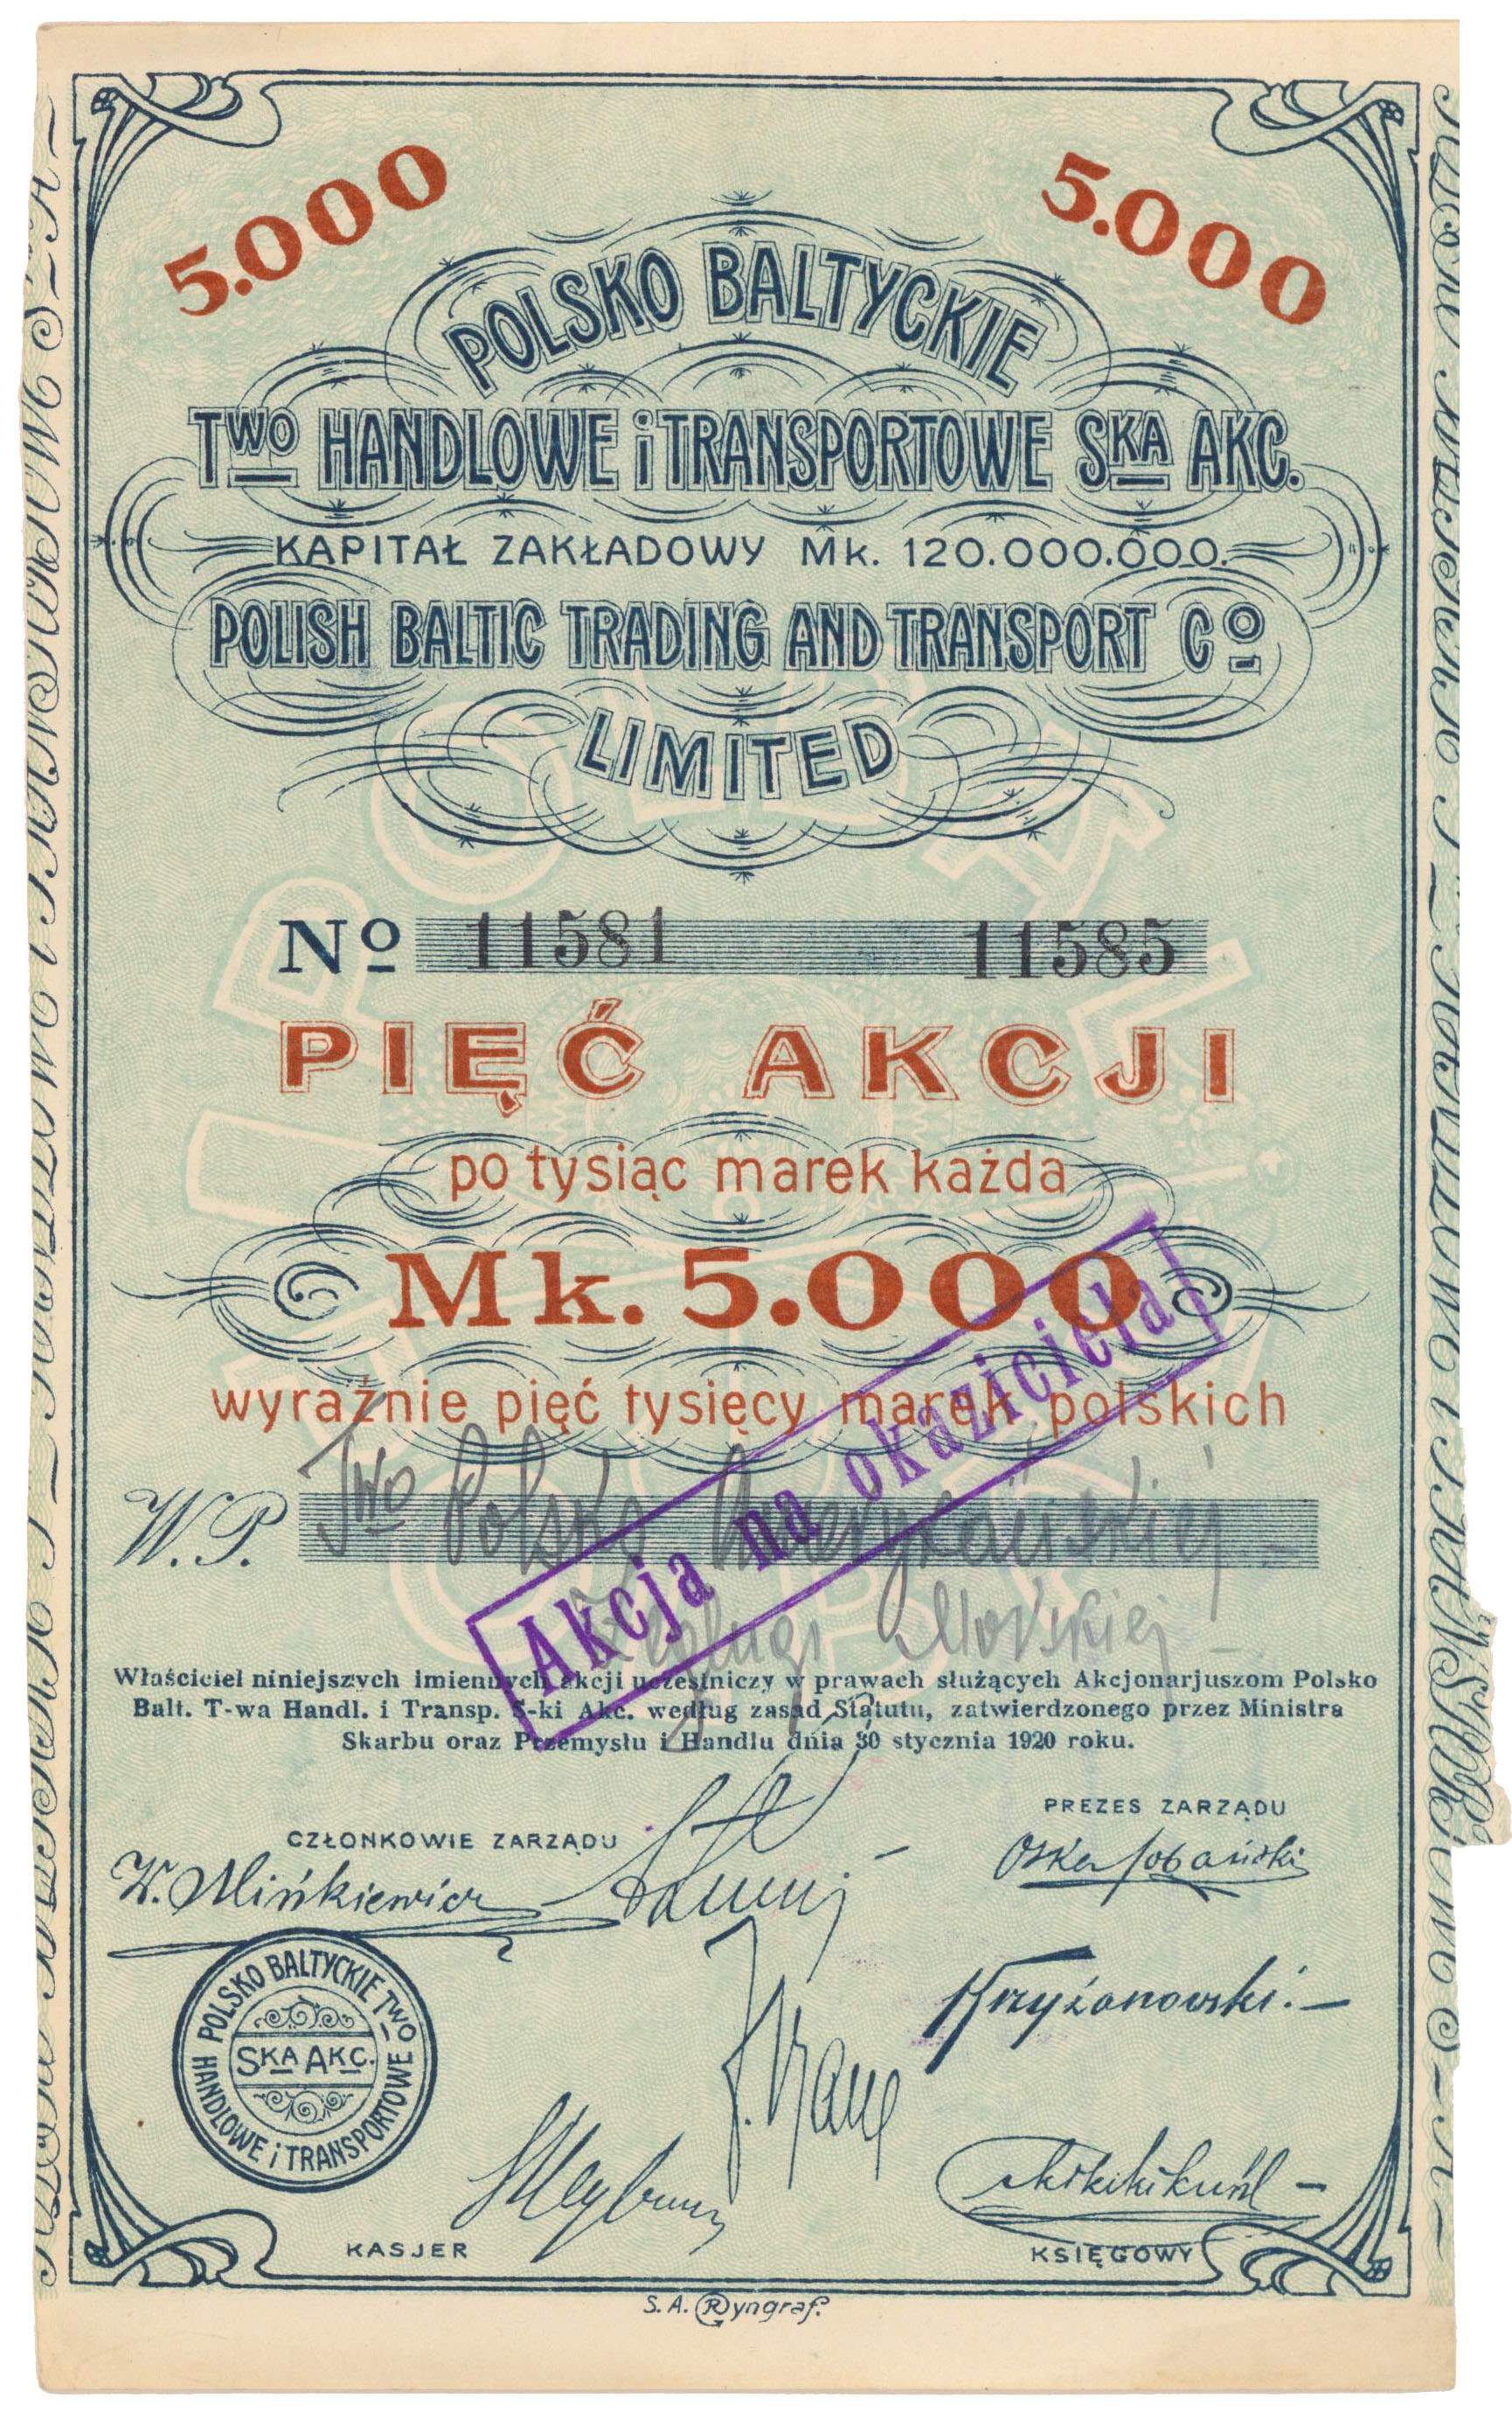 5.000
5.000
POLSKO BALTYCKIE
Two HANDLOWE i TRANSPORTOWE SKA AKC.
KAPITAŁ ZAKŁADOWY Mk. 120.000.000.
POLISH BALTIC TRADING AND TRANSPORT Co
LIMITED
No 11581 11585
PIĘĆ AKCJI
po tysiąc marek każda
Mk. 5.000
wyraźnie pięć tysięcy marek polskich
Akcja na okaziciela
W.P. Two Polsko Amerykańskiej
Żeglugi Morskiej
Właściciel niniejszych imiennych akcji uczestniczy w prawach służących Akcjonarjuszom Polsko
Balt. T-wa Handl. i Transp. S-ki Akc. według zasad Statutu, zatwierdzonego przez Ministra
Skarbu oraz Przemysłu i Handlu dnia 30 stycznia 1920 roku.
PREZES ZARZĄDU
CZŁONKOWIE ZARZĄDU
W. Mińkiewicz
Krzyżanowski.
POLSKO BALTYCKIE Two
SKA AKC.
HANDLOWE i TRANSPORTOWE
KASJER
KSIĘGOWY
S.A. Ryngraf.